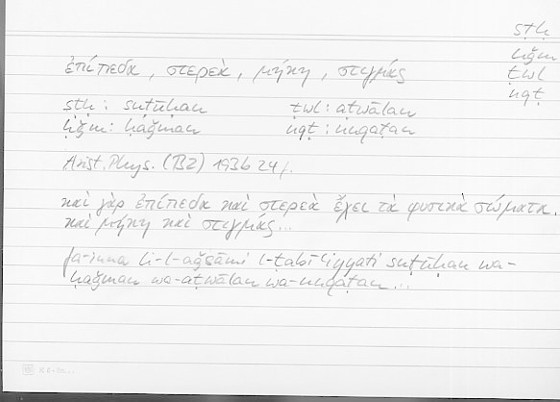 sṭḥ
ḥǧm
ṭwl
nqṭ
ἐπίπεδα, στερεὰ, μήκη, στιγμάς
sṭḥ : suṭūḥan ṭwl : aṭwālan
ḥǧm : ḥaǧman nqṭ : nuqaṭan
Arist. Phys. (B2) 193b 24 f.
καὶ γὰρ ἐπίπεδα καὶ στερεὰ ἔχει τὰ φυσικὰ σώματα
καὶ μήκη καὶ στιγμάς...
fa-inna li-l-aǧsāmi l-ṭabīʿiyyati suṭūḥan wa-
ḥaǧman wa-aṭwālan wa-nuqaṭan...